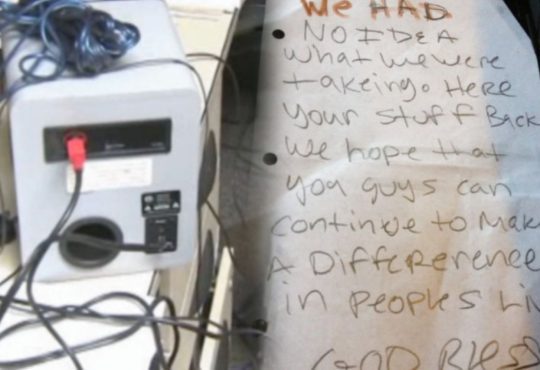 We HAD
NO IDEA
what we were
takeing. Here
your stuff Back
we hope that
you guys can
continue to Make
A Difference
in peoples Li
GOD Bless